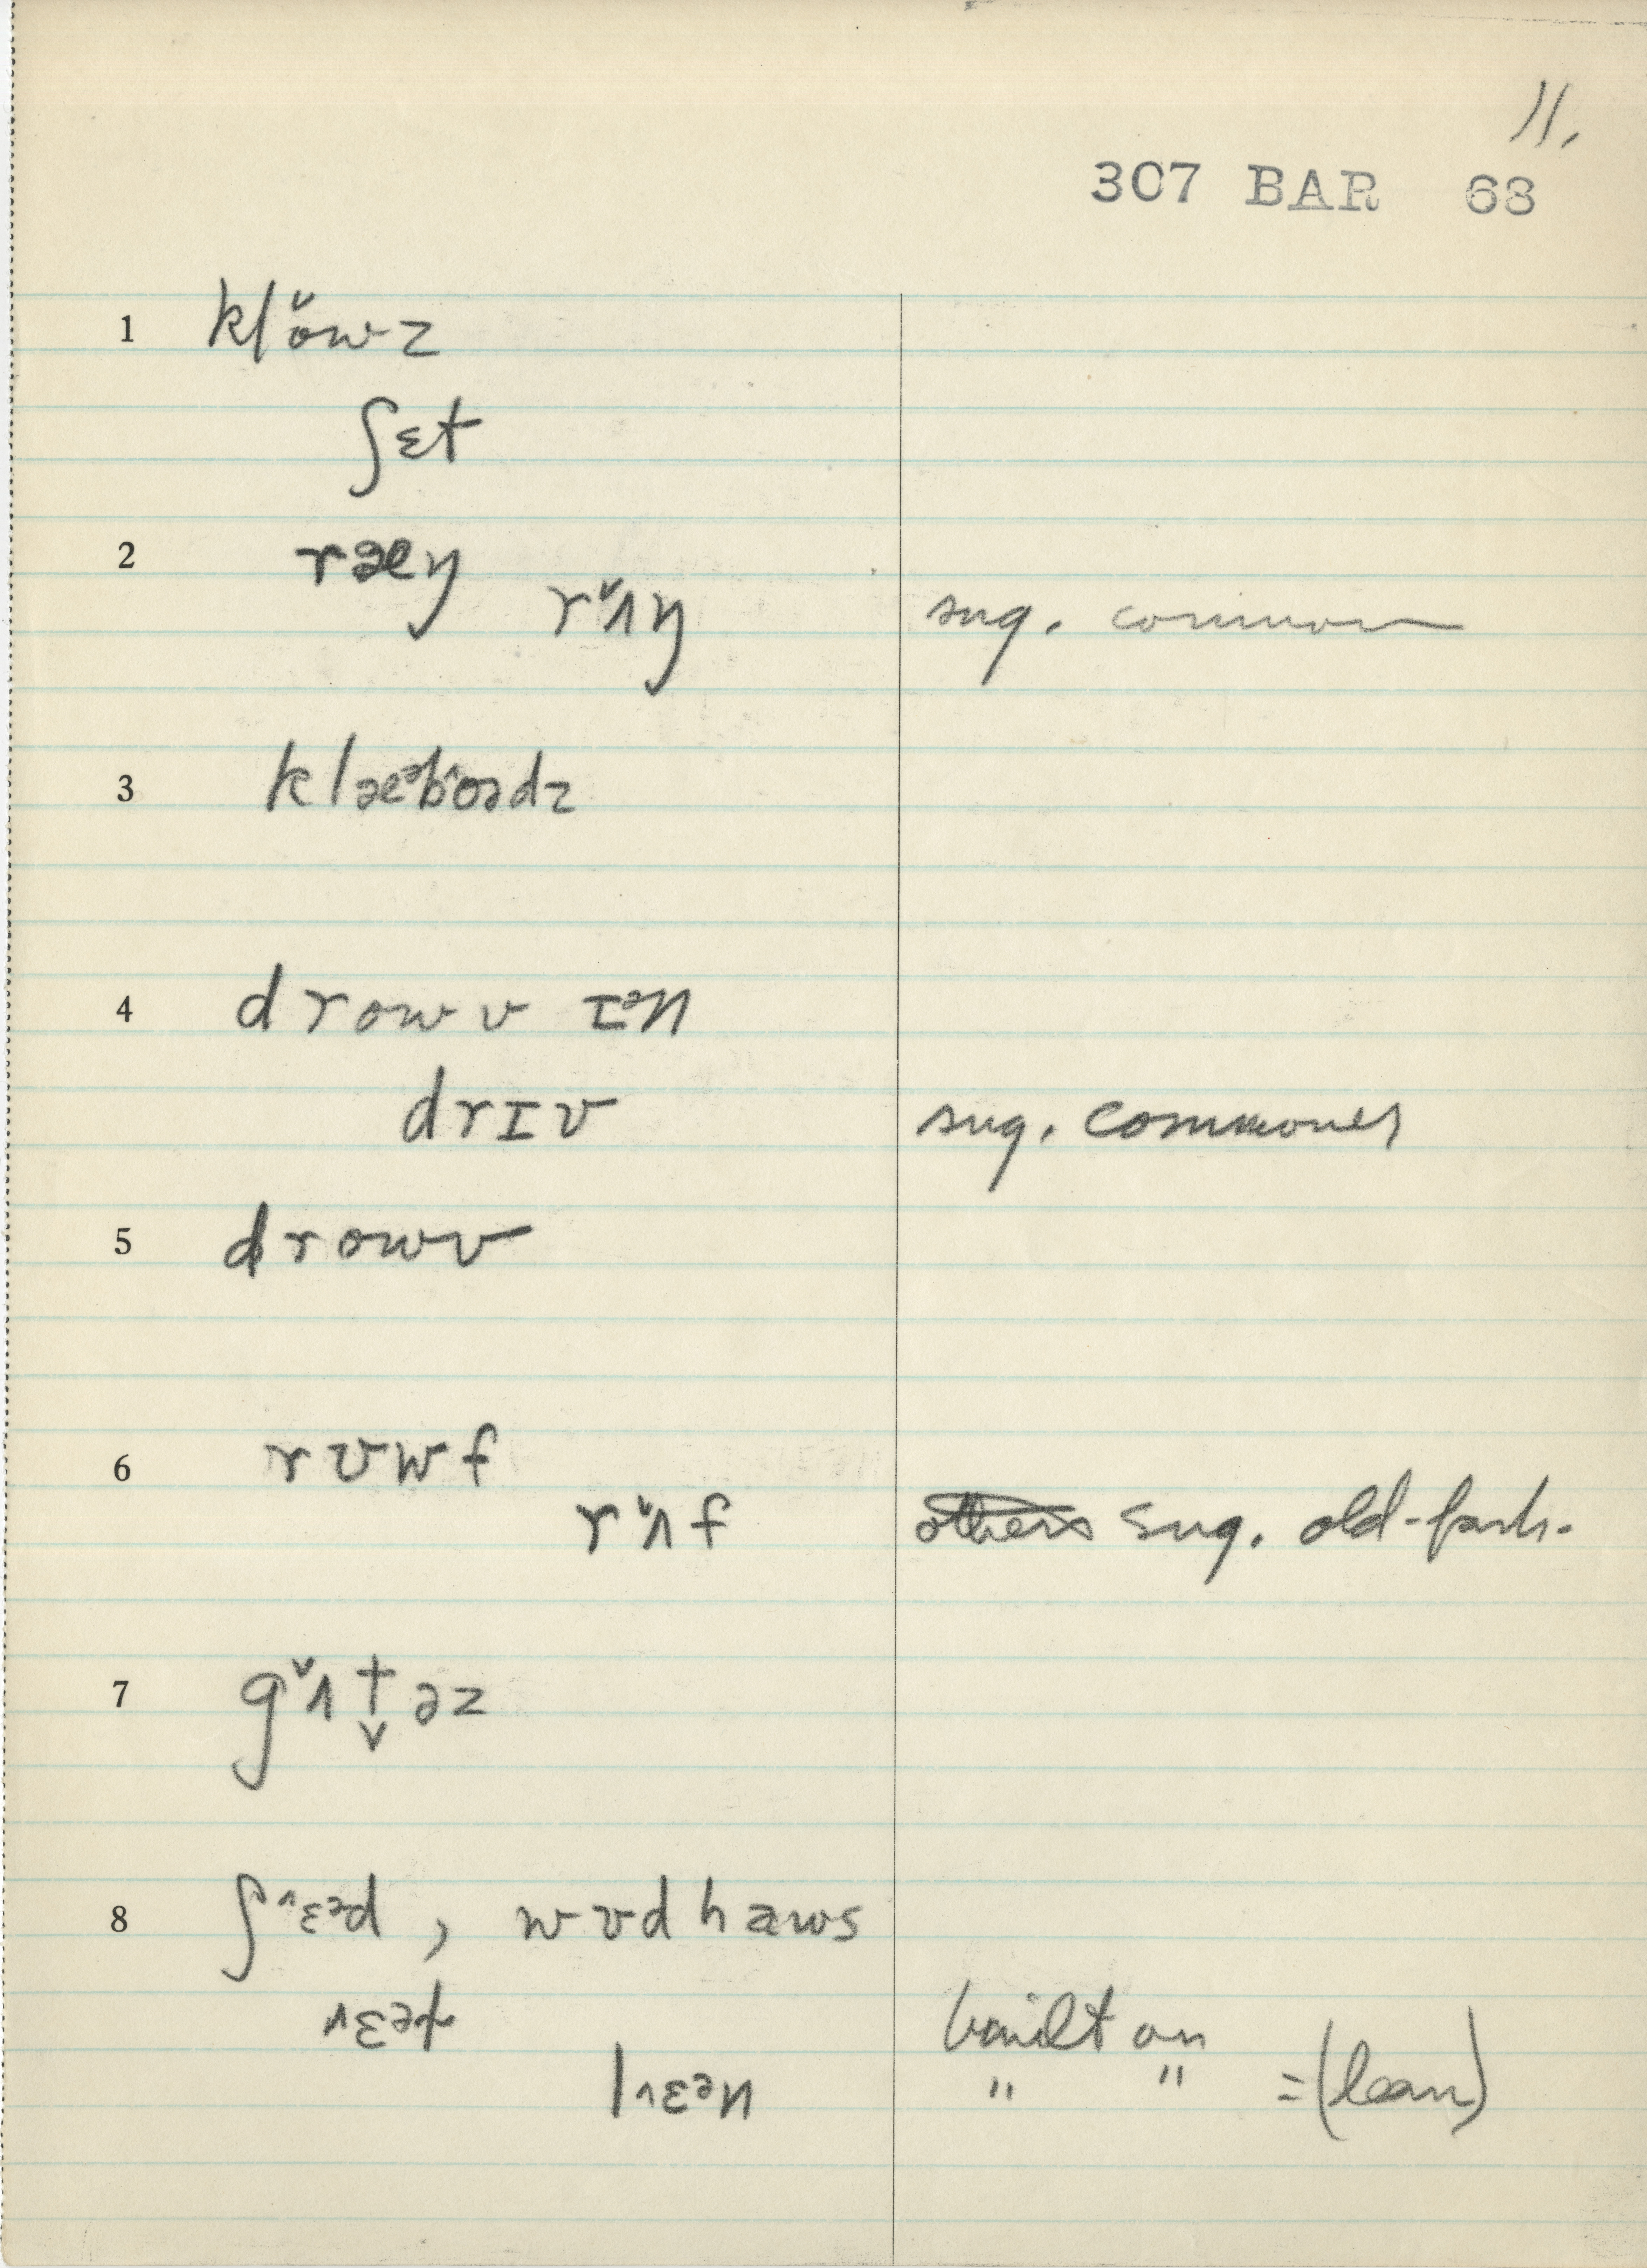 11.
307 BAR 63
1 klo˅wz
ʃɛt
2 ræy
r˅ʌy sug. common
3 klæᵊbo^ədz
4 drowv ɪᵊn
drɪv sug. commoner
5 drowv
6 rʊwf
r˅ʌf sug. old-fash.
7 g˅ʌt̬əz
8 ʃ^ɛᵊd, wʊdhaws
^ɛət built on
l^ɛᵊn " " =(lean)